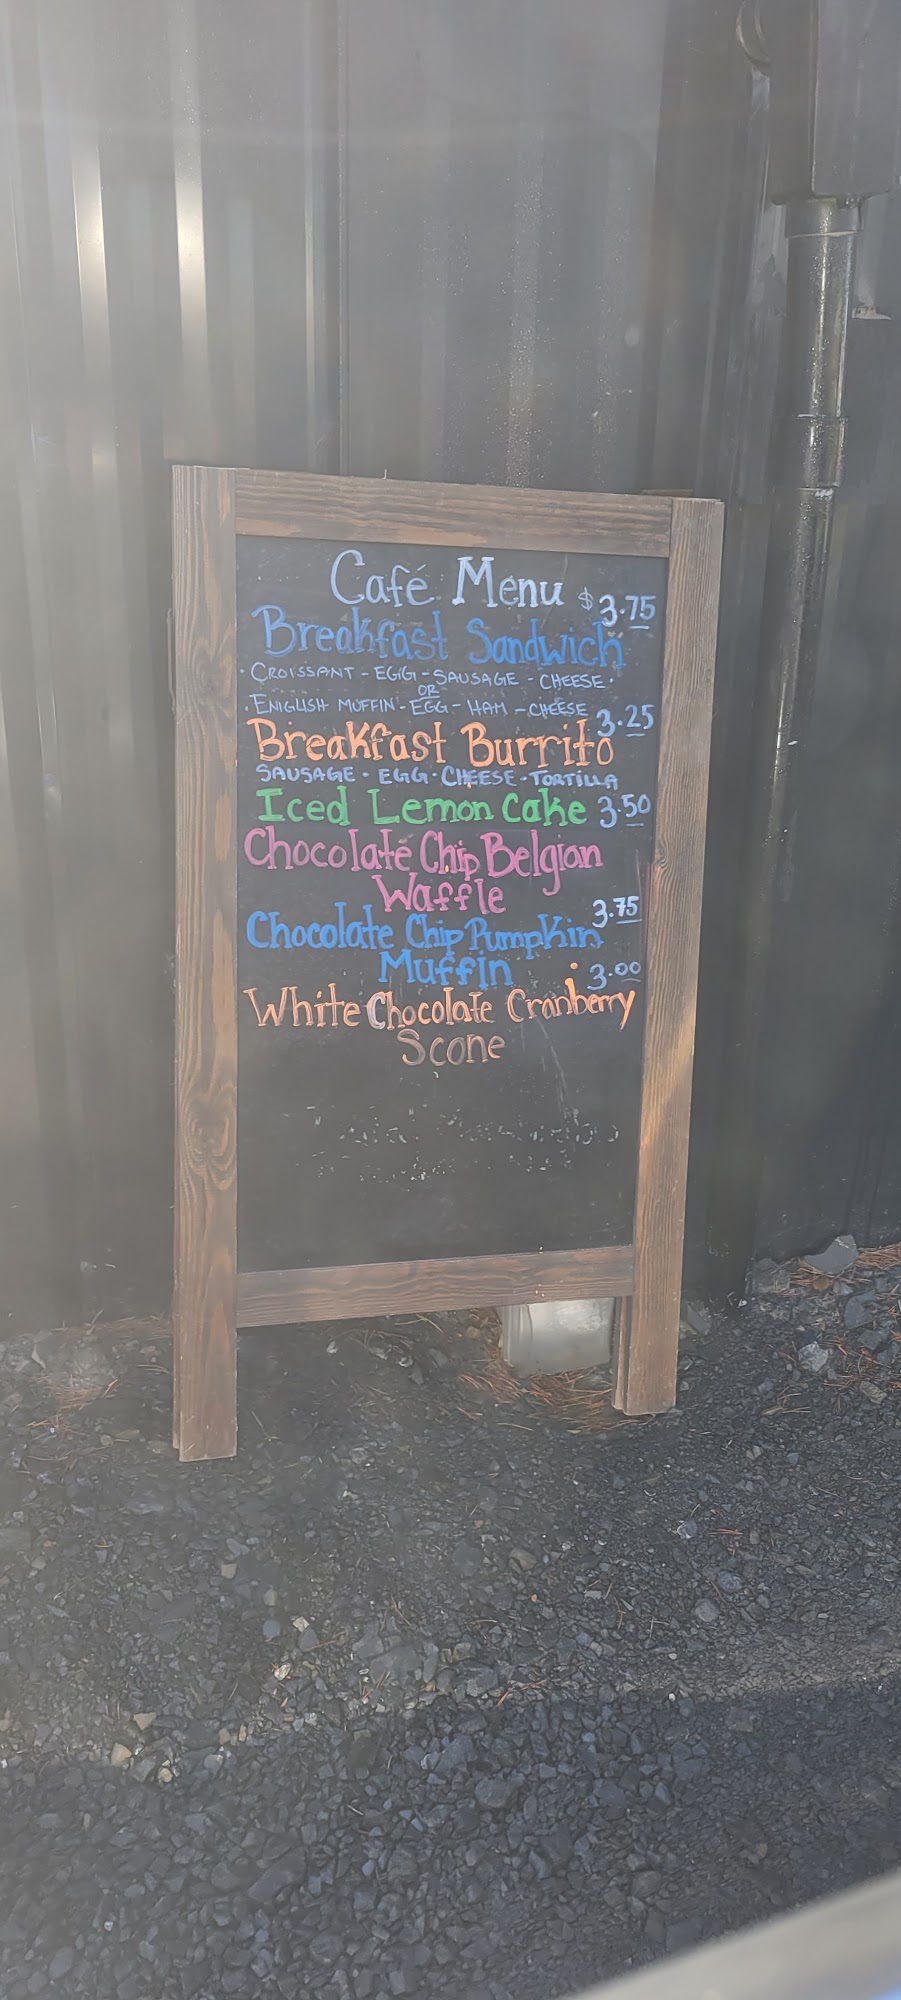 Café Menu
$3.75
Breakfast Sandwich
· CROISSANT - EGG - SAUSAGE - CHEESE ·
OR
· ENGLISH MUFFIN - EGG - HAM - CHEESE
3.25
Breakfast Burrito
SAUSAGE · EGG · CHEESE · TORTILLA
Iced Lemon Cake 3.50
Chocolate Chip Belgian
Waffle
3.75
Chocolate Chip Pumpkin
Muffin
3.00
White Chocolate Cranberry
Scone